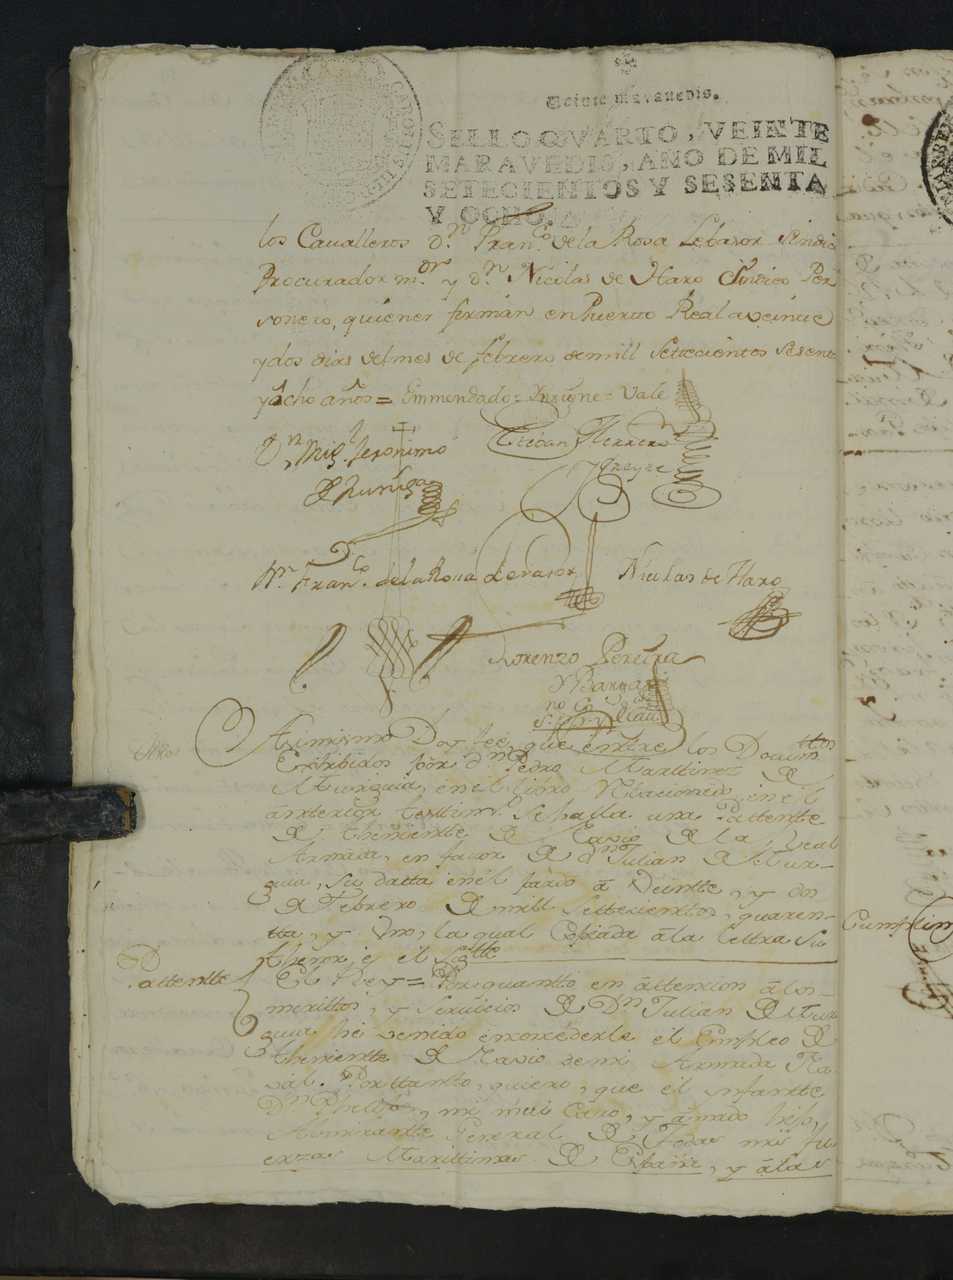 Veinte maravedis.
SELLO QVARTO, VEINTE
MARAVEDIS, AÑO DE MIL
SETECIENTOS Y SESENTA
Y OCHO.
los Cavalleros D.n Fran.co de la Rosa Lebasor Sindico
Procurador m.or y D.n Nicolas de Haro Sindico Per
sonero, quienes firman en Puerto Real a veinte
y dos dias del mes de febrero de mill Settecientos Sesenta
y ocho años = Emmendado = = Vale
D.n Mig.l Jeronimo
Esteban Herrero
Freyre
D.n Fran.co de la Rosa Levasor
Nicolas de Haro
Lorenzo Pereira
Asimismo Doy fee, que entre los Docum.ttos
Exhibidos por D.n Pedro Marttinez de
Murguia, en el libro en el
antterior testtim.o Se halla una Pattente
de Theniente de Navio de la Real
Armada, en favor de D.n Julian de Mur-
guia, su datta en el Pardo â Veintte, y
de Febrero de mill settecienttos, quaren-
tta, y Uno, la qual Copiada â la Lettra Su
thenor es el Sig.tte
Pattentte
El Rey = Por quantto en âttencion â los
merittos, y Servicios de D.n Julian de Mur
guia hé venido en conzederle el Empleo de
Theniente de Navio de mi Armada Na
val. Por ttantto, quiero, que el infantte
D.n Phelipe, mi mui Caro, y âmado hijo,
Almirantte General de todas mis fu
erzas Marittimas de España, y â las